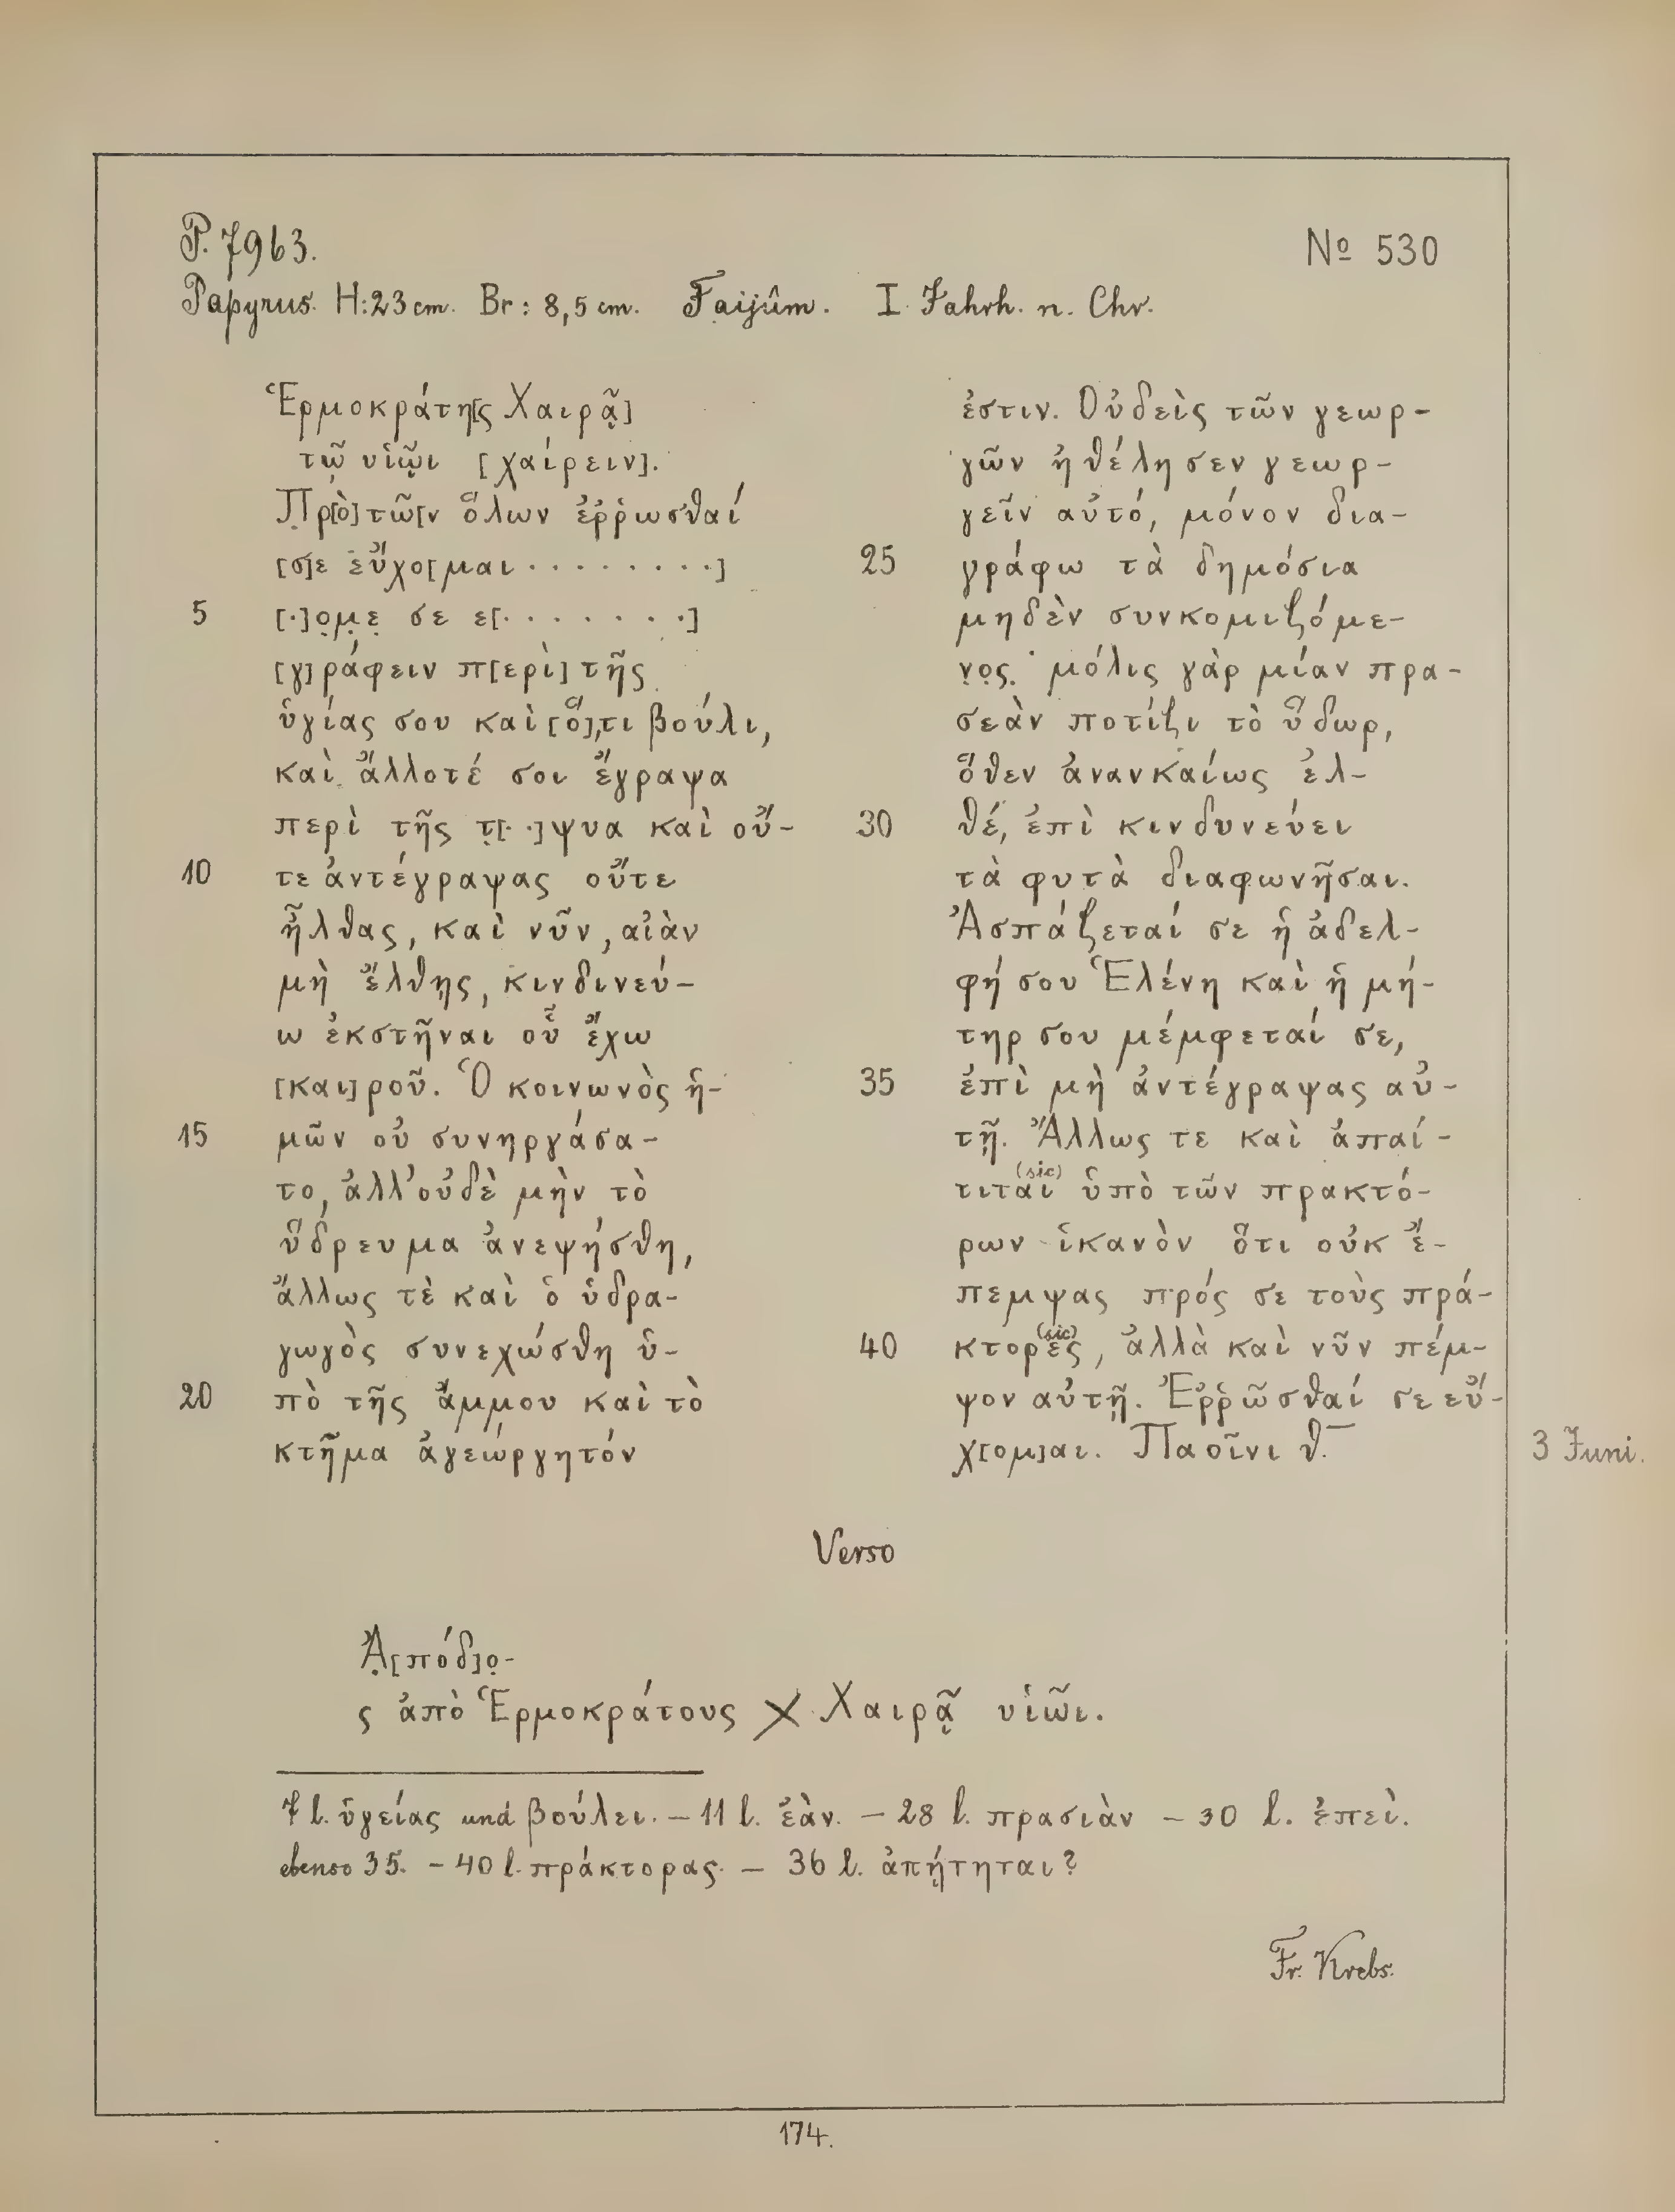 P. 7963.
№ 530
Papyrus. H: 23 cm. Br: 8,5 cm. Faijûm. I Jahrh. n. Chr.
Ἑρμοκράτη[ς Χαιρᾷ]
τῷ υἱῷι [χαίρειν].
Πρ[ὸ] τῶ[ν ὅλων ἐρρῶσθαί
[σ]ε εὔχο[μαι ········]
5 [·]ομε σε ε[·······]
[γ]ράφειν π[ερὶ] τῆς
ὑγίας σου καὶ [ὅ],τι βούλι,
καὶ ἄλλοτέ σοι ἔγραψα
περὶ τῆς τ[··]ψυα καὶ οὔ-
10 τε ἀντέγραψας οὔτε
ἦλθας, καὶ νῦν, αἰὰν
μὴ ἔλθῃς, κινδινεύ-
ω ἐκστῆναι οὗ ἔχω
[και]ροῦ. Ὁ κοινωνὸς ἡ-
15 μῶν οὐ συνηργάσα-
το, ἀλλ' οὐδὲ μὴν τὸ
ὕδρευμα ἀνεψήσθη,
ἄλλως τὲ καὶ ὁ ὑδρα-
γωγὸς συνεχώσθη ὑ-
20 πὸ τῆς ἄμμου καὶ τὸ
κτῆμα ἀγεώργητόν
ἐστιν. Οὐδεὶς τῶν γεωρ-
γῶν ἠθέλησεν γεωρ-
γεῖν αὐτό, μόνον δια-
25 γράφω τὰ δημόσια
μηδὲν συνκομιζόμε-
νος. μόλις γὰρ μίαν πρα-
σεὰν ποτίζι τὸ ὕδωρ,
ὅθεν ἀνανκαίως ἐλ-
30 θέ, ἐπὶ κινδυνεύει
τὰ φυτὰ διαφωνῆσαι.
Ἀσπάζεταί σε ἡ ἀδελ-
φή σου Ἑλένη καὶ ἡ μή-
τηρ σου μέμφεταί σε,
35 ἐπὶ μὴ ἀντέγραψας αὐ-
τῇ. Ἄλλως τε καὶ ἀπαί-
τιται (sic) ὑπὸ τῶν πρακτό-
ρων ἱκανὸν ὅτι οὐκ ἔ-
πεμψας πρός σε τοὺς πρά-
40 κτορες (sic), ἀλλὰ καὶ νῦν πέμ-
ψον αὐτῇ. Ἐρρῶσθαί σε εὔ-
χ[ομ]αι. Παοῖνι θ.
3 Juni.
Verso
Ἀ[πόδ]ο-
ς ἀπὸ Ἑρμοκράτους X Χαιρᾷ υἱῶι.
7 l. ὑγείας und βούλει. – 11 l. ἐὰν. – 28 l. πρασιὰν – 30 l. ἐπεὶ.
ebenso 35. – 40 l. πράκτορας. – 36 l. ἀπῄτηται?
Fr. Krebs.
174.